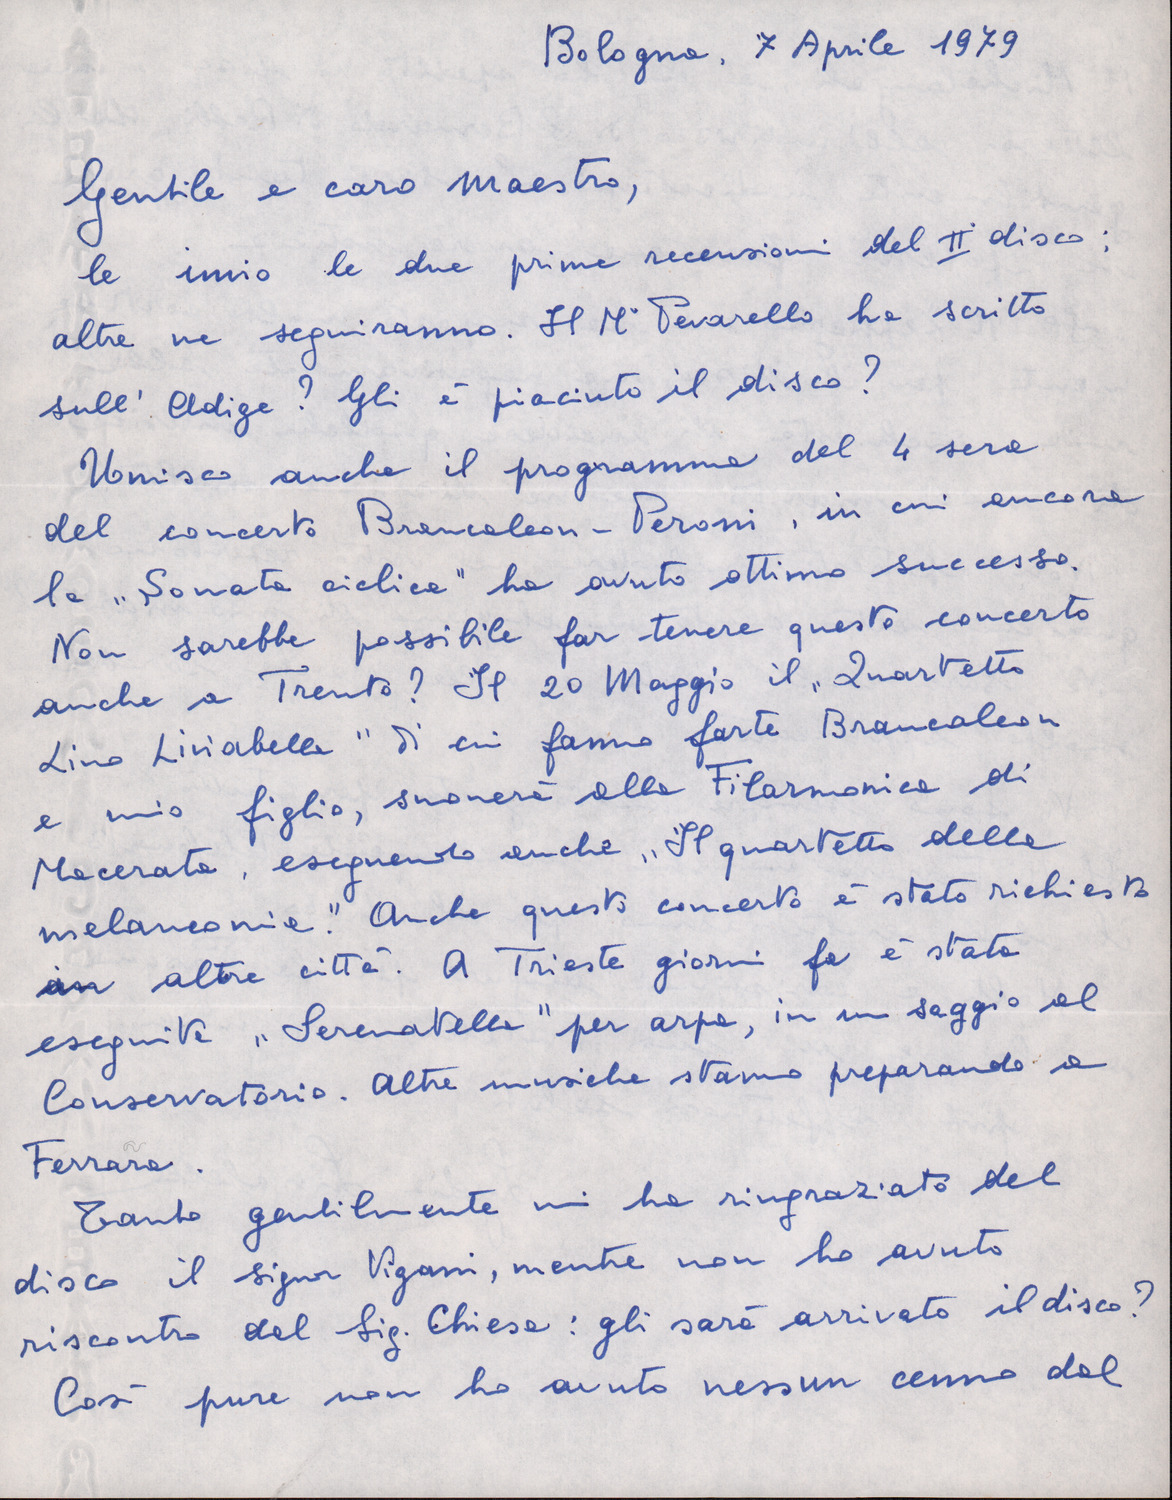 Bologna, 7 Aprile 1979
Gentile e caro Maestro,
le invio le due prime recensioni del II° disco:
altre ne seguiranno. Il M° Pevarello ha scritto
sull' Adige? Gli è piaciuto il disco?
Unisco anche il programma del 4 sera
del concerto Brancaleon-Perosi, in cui ancora
la „Sonata ciclica" ha avuto ottimo successo.
Non sarebbe possibile far tenere questo concerto
anche a Trento? Il 20 Maggio il „Quartetto
Lino Liviabella" di cui fanno parte Brancaleon
e mio figlio, suonerà alla Filarmonica di
Macerata, eseguendo anche „Il quartetto della
melanconia". Anche questo concerto è stato richiesto
in altre città. A Trieste giorni fa è stata
eseguita „Serenatella" per arpa, in un saggio al
Conservatorio. Altre musiche stanno preparando a
Ferrara.
Tanto gentilmente mi ha ringraziato del
disco il signor Vigani, mentre non ho avuto
riscontro dal Sig. Chiesa: gli sarà arrivato il disco?
Così pure non ho avuto nessun cenno dal